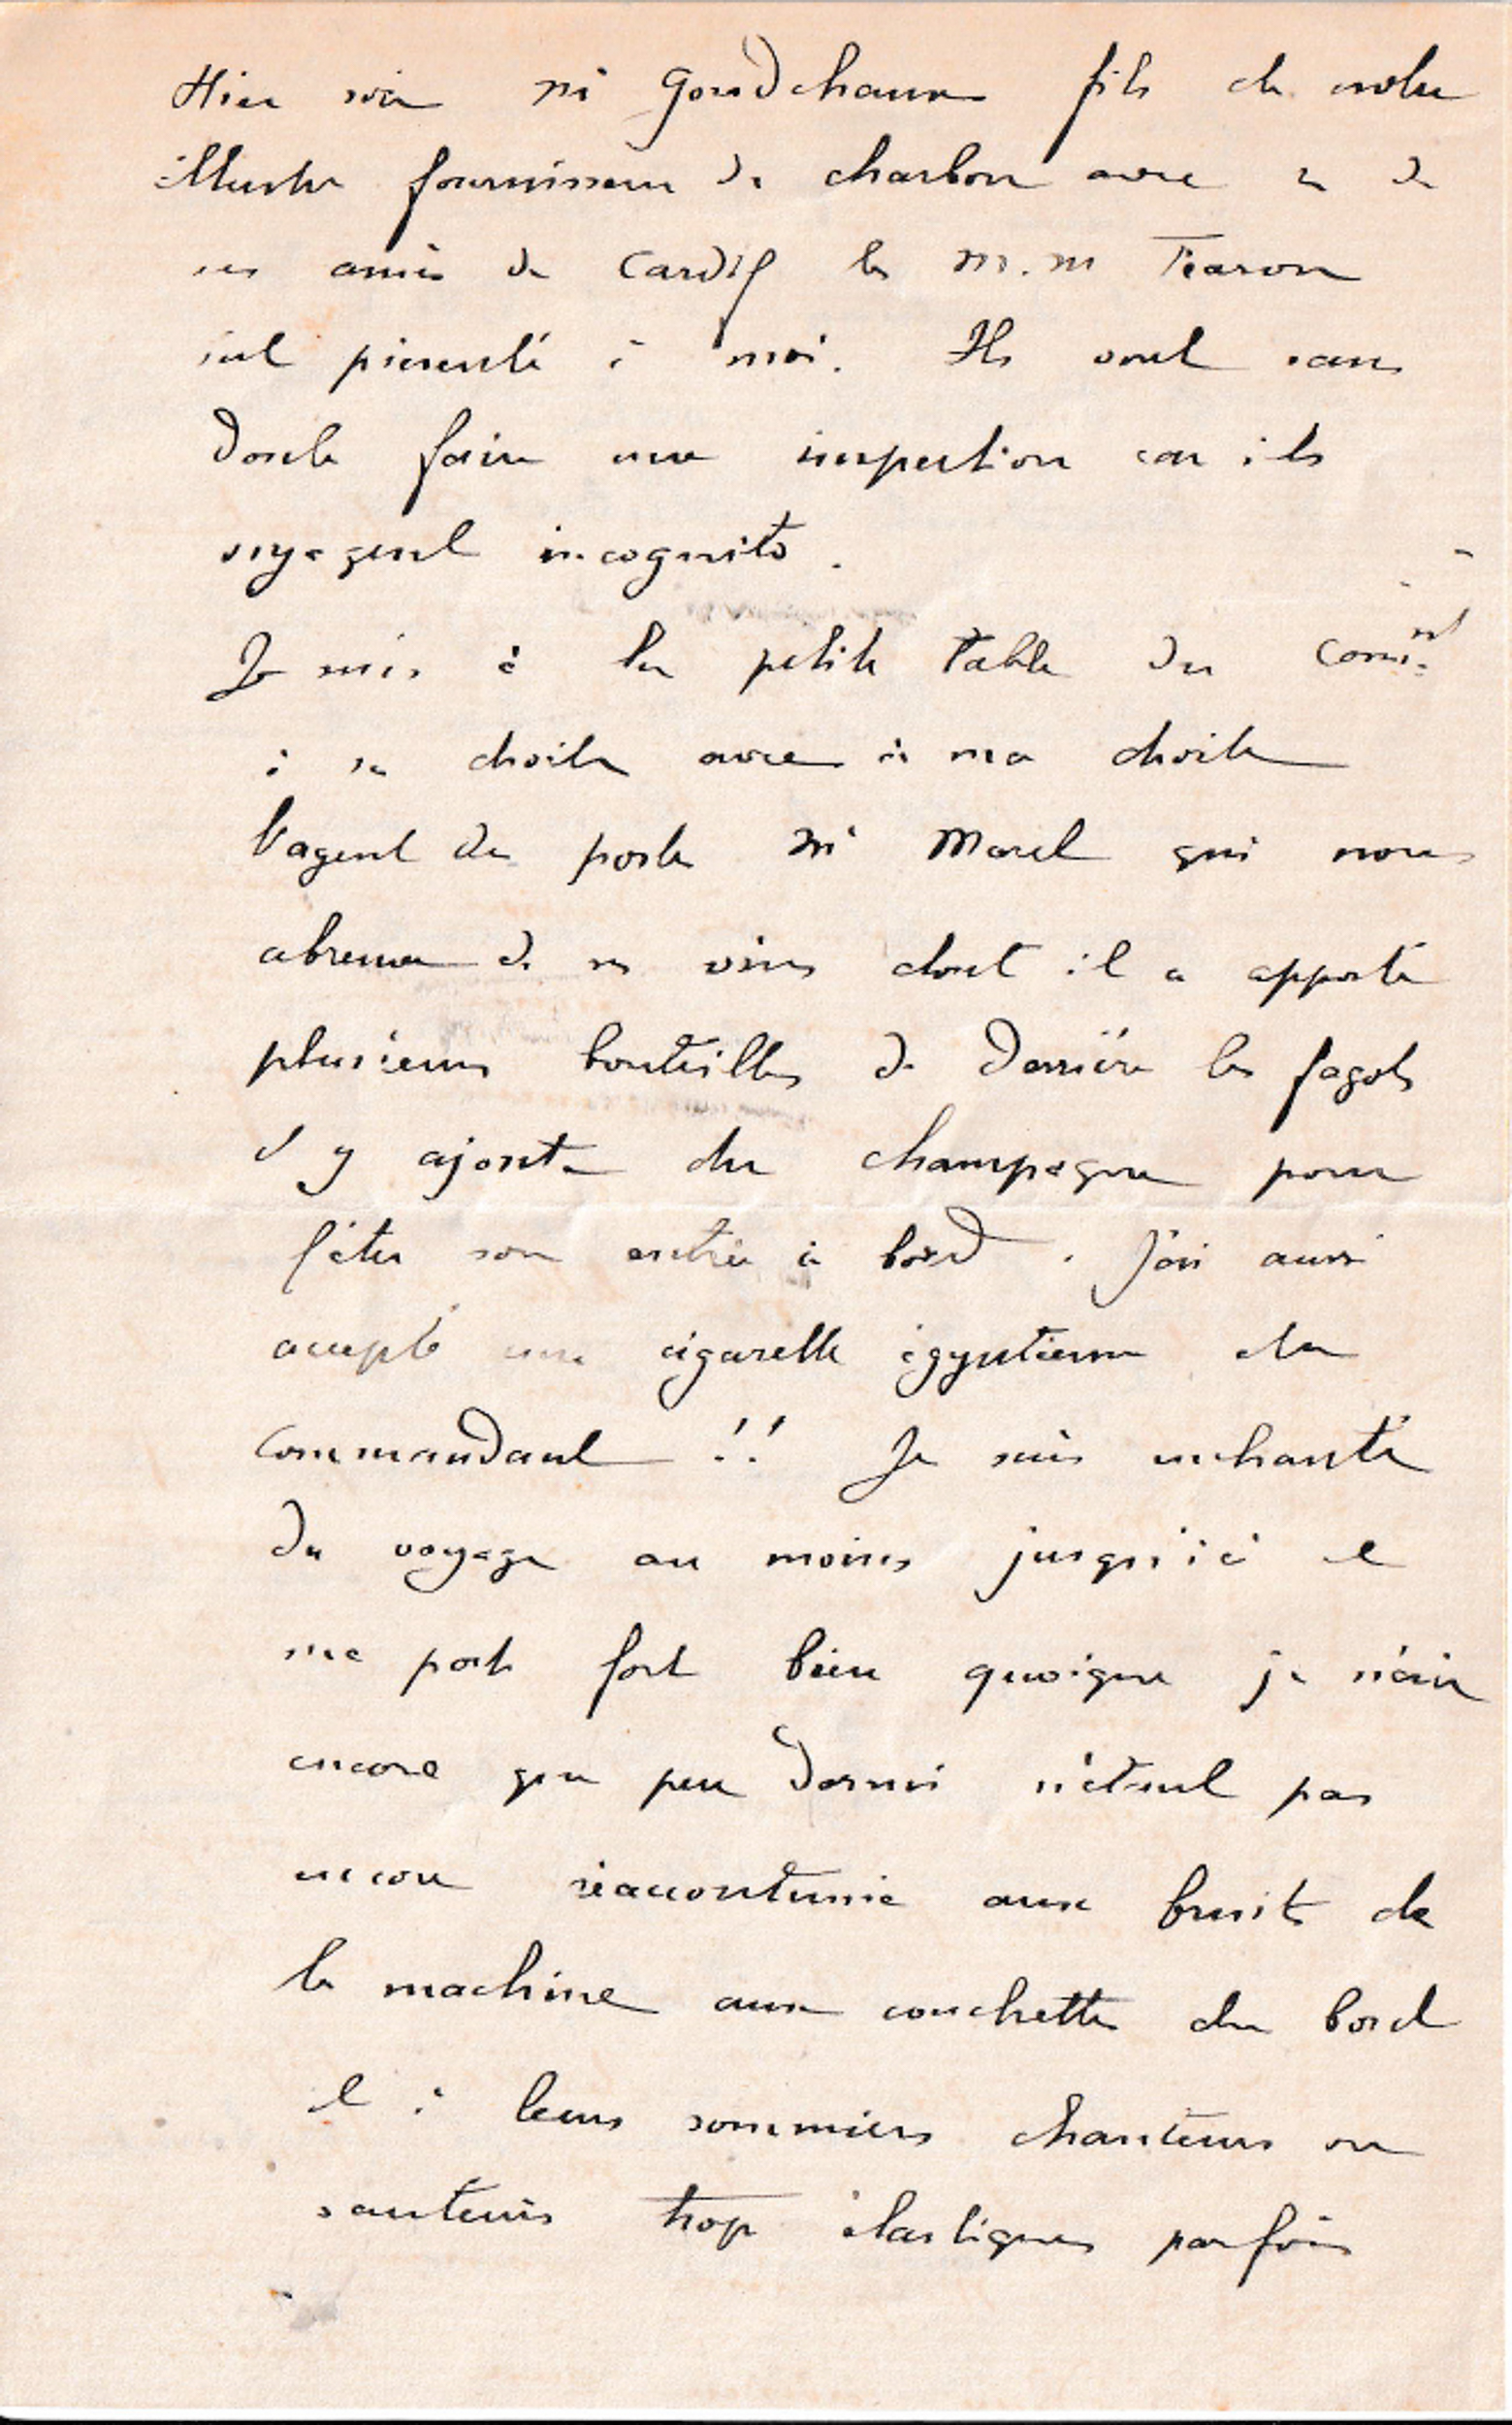 Hier soir Mr Goudchaux fils de notre
illustre fournisseur de charbon avec un de
ses amis de Cardif les M.M Tearson
s'est présenté à moi. Ils vont sans
doute faire une inspection car ils
voyagent incognito.
Je suis à la petite table du Comt
à sa droite avec à ma droite
l'agent des postes Mr Morel qui nous
abreuve de ses vins dont il a apporté
plusieurs bouteilles de derrière les fagots
il y ajoute du champagne pour
fêter son entrée à bord. J'ai aussi
accepté une cigarette égyptienne du
commandant !! Je suis enchanté
du voyage au moins jusqu'ici et
me porte fort bien quoique je n'aie
encore que peu dormi n'étant pas
encore réaccoutumé aux bruits de
la machine aux couchettes du bord
et à leurs sommiers chanteurs ou
sauteurs trop élastiques parfois